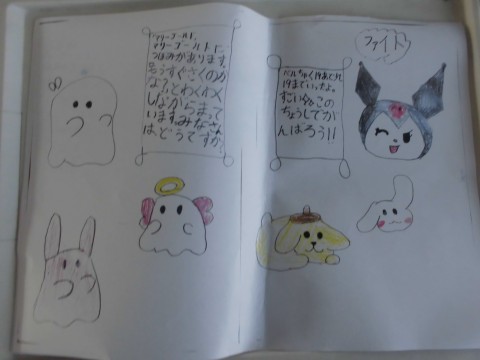 マリーゴールドに
マリーゴールドに、
つぼみがあります。
もうすぐさくのか
な?とわくわく
しながらまって
います。みなさん
はどうですか。
ベルちゅくはあてれ
19までいったよ。
すごいなこの
ちょうしでが
んばろう!!
ファイト